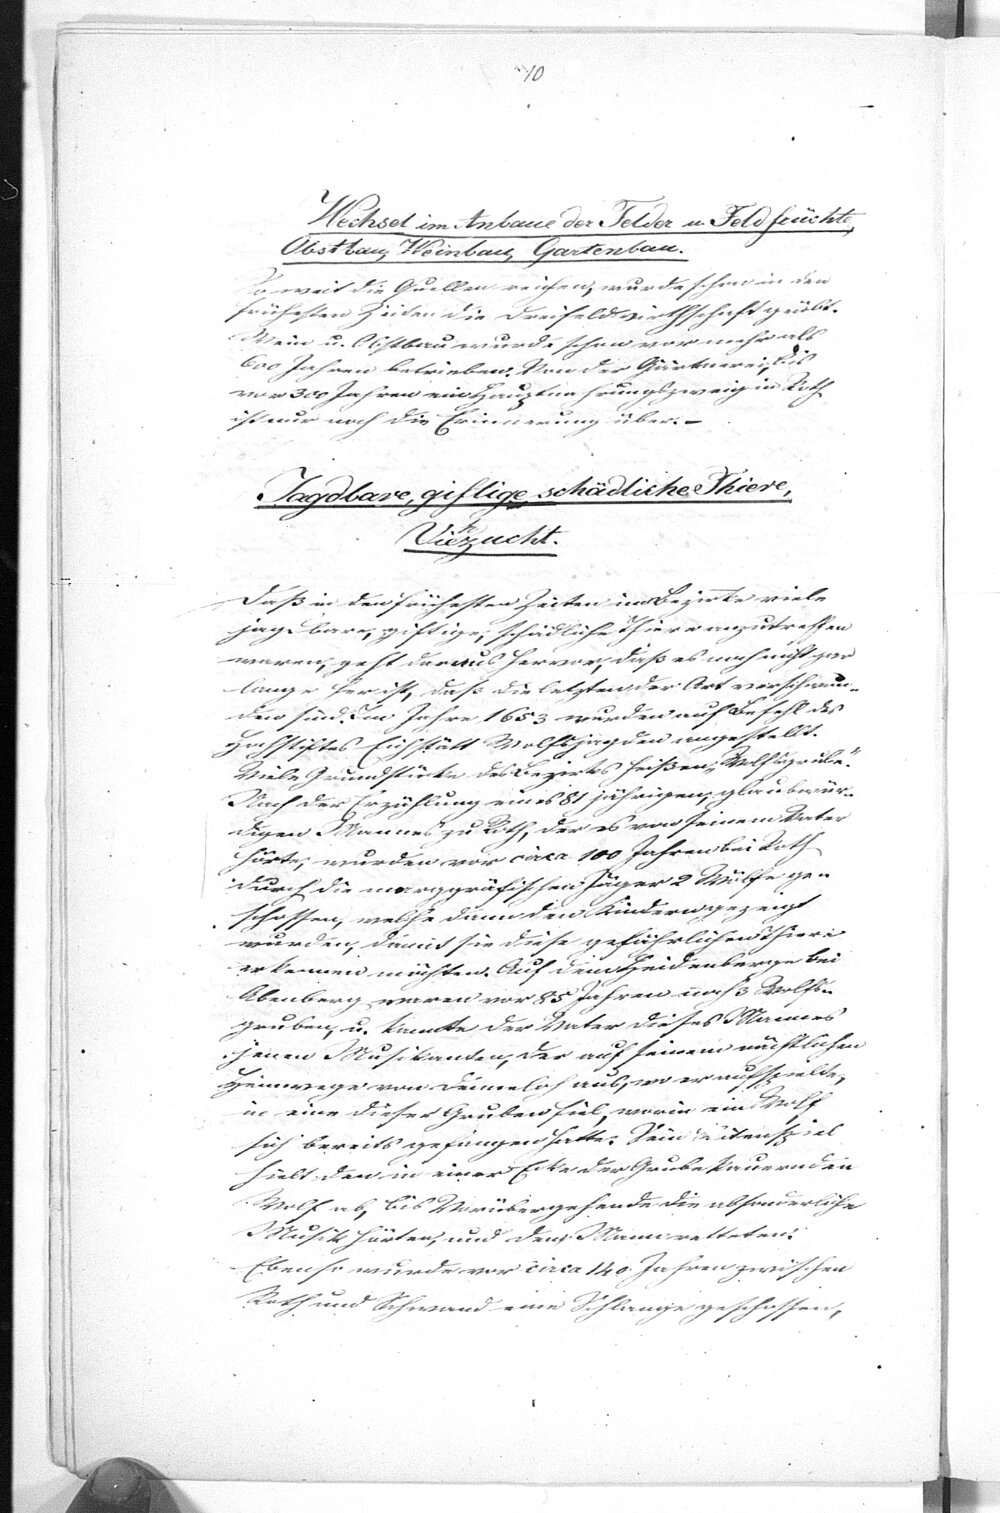 10
Wechsel im Anbaue der Felder u. Feldfrüchte,
Obstbau, Weinbau, Gartenbau.
So weit die Quellen reichen, wurde schon in den
frühesten Zeiten die Dreifeldwirthschaft geübt.
Wein u. Obstbau wurde schon vor mehr als
600 Jahren betrieben. Von der Gärtnerei, die
vor 300 Jahren ein Hauptnahrungszweig in Roth
ist nur noch die Erinnerung über. –
Jagdbare, giftige schädliche Thiere,
Viehzucht.
Daß in den frühesten Zeiten im Bezirke viele
jagdbare, giftige, schädliche Thiere anzutreffen
waren, geht daraus hervor, daß es noch nicht gar
lange her ist, daß die letzten der Art verschwun-
den sind. Im Jahre 1653 wurden auf Befehl des
Hochstiftes Eichstätt Wolfsjagden angestellt.
Viele Grundstücke des Bezirks heißen „Wolfsgrube".
Nach der Erzählung eines 81 jährigen, glaubwür-
digen Mannes zu Roth, der es von seinem Vater
hörte, wurden vor circa 100 Jahren bei Roth
durch die marggräfischen Jäger 2 Wölfe ge-
schossen, welche dann den Kindern gezeigt
wurden, damit sie diese gefährlichen Thiere
erkennen möchten. Auf dem Heidenberge bei
Abenberg waren vor 85 Jahren noch 3 Wolfs-
gruben, u. kannte der Vater dieses Mannes
jenen Musikanten, der auf seinem nächtlichen
Heimwege von aus, wo er aufspielte,
in eine dieser Gruben fiel, worin ein Wolf
sich bereits gefangen hatte. Sein Saitenspiel
hielt den in einer Ecke der Grube kauernden
Wolf ab, bis Vorübergehende die absonderliche
Musik hörten, und den Mann retteten.
Ebenso wurde vor circa 140 Jahren zwischen
Roth und Schwand eine Schlange geschossen,